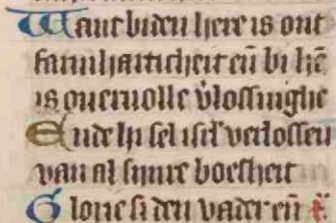 Want biden here is ont
farmharticheit eñ bi hē
is oueruolle v̓lossinghe
Ende hi sel isrl̓ verlossen
van al sinre boesheit
Glorie si den vader eñ